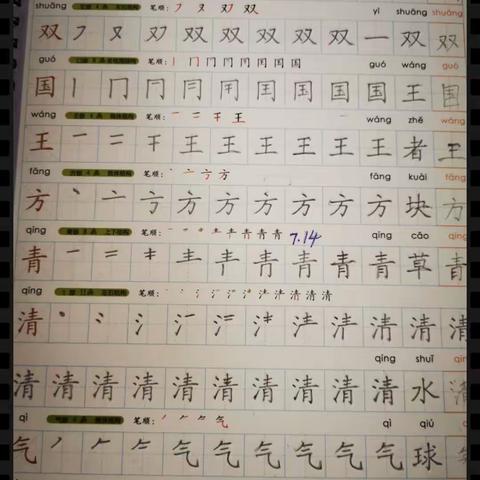 shuāng 笔顺: 双 双 yī shuāng shuāng
双 フ 又 双 双 双 双 双 一 双 双
guó 笔顺: 丨 冂 国 国 guó wáng guó
国 丨 冂 冂 国 国 国 国 王 国
wáng 笔顺: 一 二 干 王 wáng zhě wáng
王 一 二 干 王 王 王 王 王 王 者 王
fāng 4 画 笔顺: 丶 亠 方 方 fāng kuài fāng
方 丶 亠 方 方 方 方 方 方 块 方
qīng 8 画 上下结构 笔顺: 一 二 青 青 青 7.14 qīng cǎo qīng
青 一 二 龶 青 青 青 青 草 青
qīng 11 画 左右结构 笔顺: 丶 氵 清 清
清 丶 氵 清 清 清
qīng shuǐ qīng
清 清 清 清 清 清 清 清 清 清 水 清
qì 4 画 笔顺: 丿 气 qì qiú
气 丿 气 气 气 气 气 气 气 球